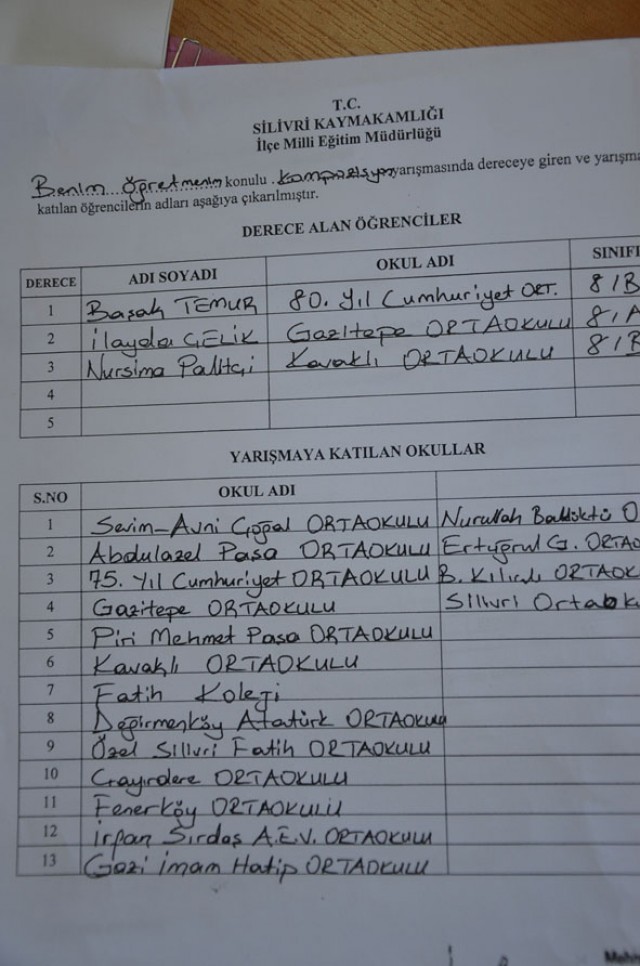 T.C.
SİLİVRİ KAYMAKAMLIĞI
İlçe Milli Eğitim Müdürlüğü
Benim öğretmenim konulu kompozisyon yarışmasında dereceye giren ve yarışma
katılan öğrencilerin adları aşağıya çıkarılmıştır.
DERECE ALAN ÖĞRENCİLER
DERECE ADI SOYADI OKUL ADI SINIFI
1 Başak TEMUR 80. Yıl Cumhuriyet ORT. 8/B
2 İlayda ÇELİK Gazitepe ORTAOKULU 8/A
3 Nursima Kavaklı ORTAOKULU 8/B
4
5
YARIŞMAYA KATILAN OKULLAR
S.NO OKUL ADI
1 Sevim-Avni ORTAOKULU Nurullah O
2 Abdulazel Paşa ORTAOKULU Ertuğrul G. ORTAO
3 75. Yıl Cumhuriyet ORTAOKULU B. ORTAOK
4 Gazitepe ORTAOKULU Silivri Ortaok
5 Piri Mehmet Paşa ORTAOKULU
6 Kavaklı ORTAOKULU
7 Fatih Koleji
8 Değirmenköy Atatürk ORTAOKULU
9 Özel Silivri Fatih ORTAOKULU
10 Çayırdere ORTAOKULU
11 Fenerköy ORTAOKULU
12 İrfan Sırdaş A.E.V. ORTAOKULU
13 Gazi İmam Hatip ORTAOKULU